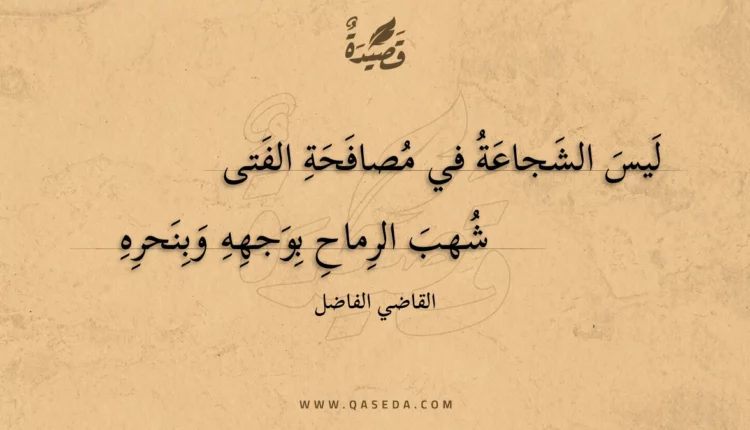 قَصِيدَةٌ
لَيسَ الشَجاعَةُ في مُصافَحَةِ الفَتى
شُهبَ الرِماحِ بِوَجهِهِ وَبِنَحرِهِ
القاضي الفاضل
WWW.QASEDA.COM